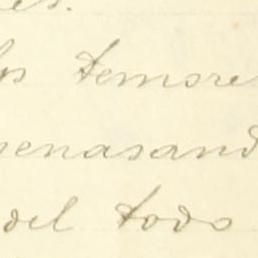 es.
los temore
penasand
del todo